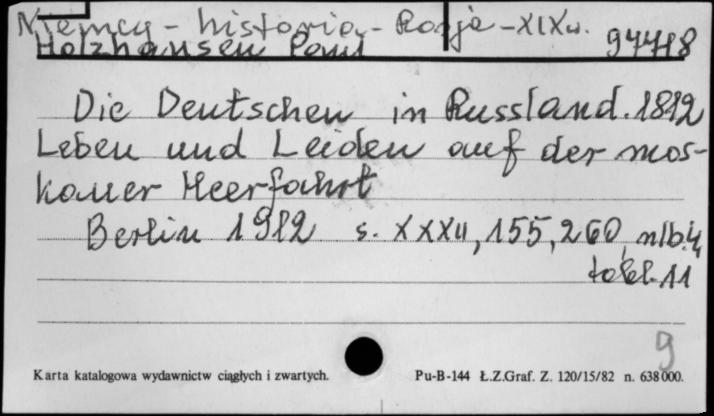 Niemcy - historia - Rosja - XIX w.
Holzhausen Paul 94418
Die Deutschen in Russland. 1812
Leben und Leiden auf der mos-
kauer Heerfahrt
Berlin 1912 s. XXXII, 155, 260, nlb. 4,
tabl. 11
9
Karta katalogowa wydawnictw ciągłych i zwartych. Pu-B-144 Ł.Z.Graf. Z. 120/15/82 n. 638 000.